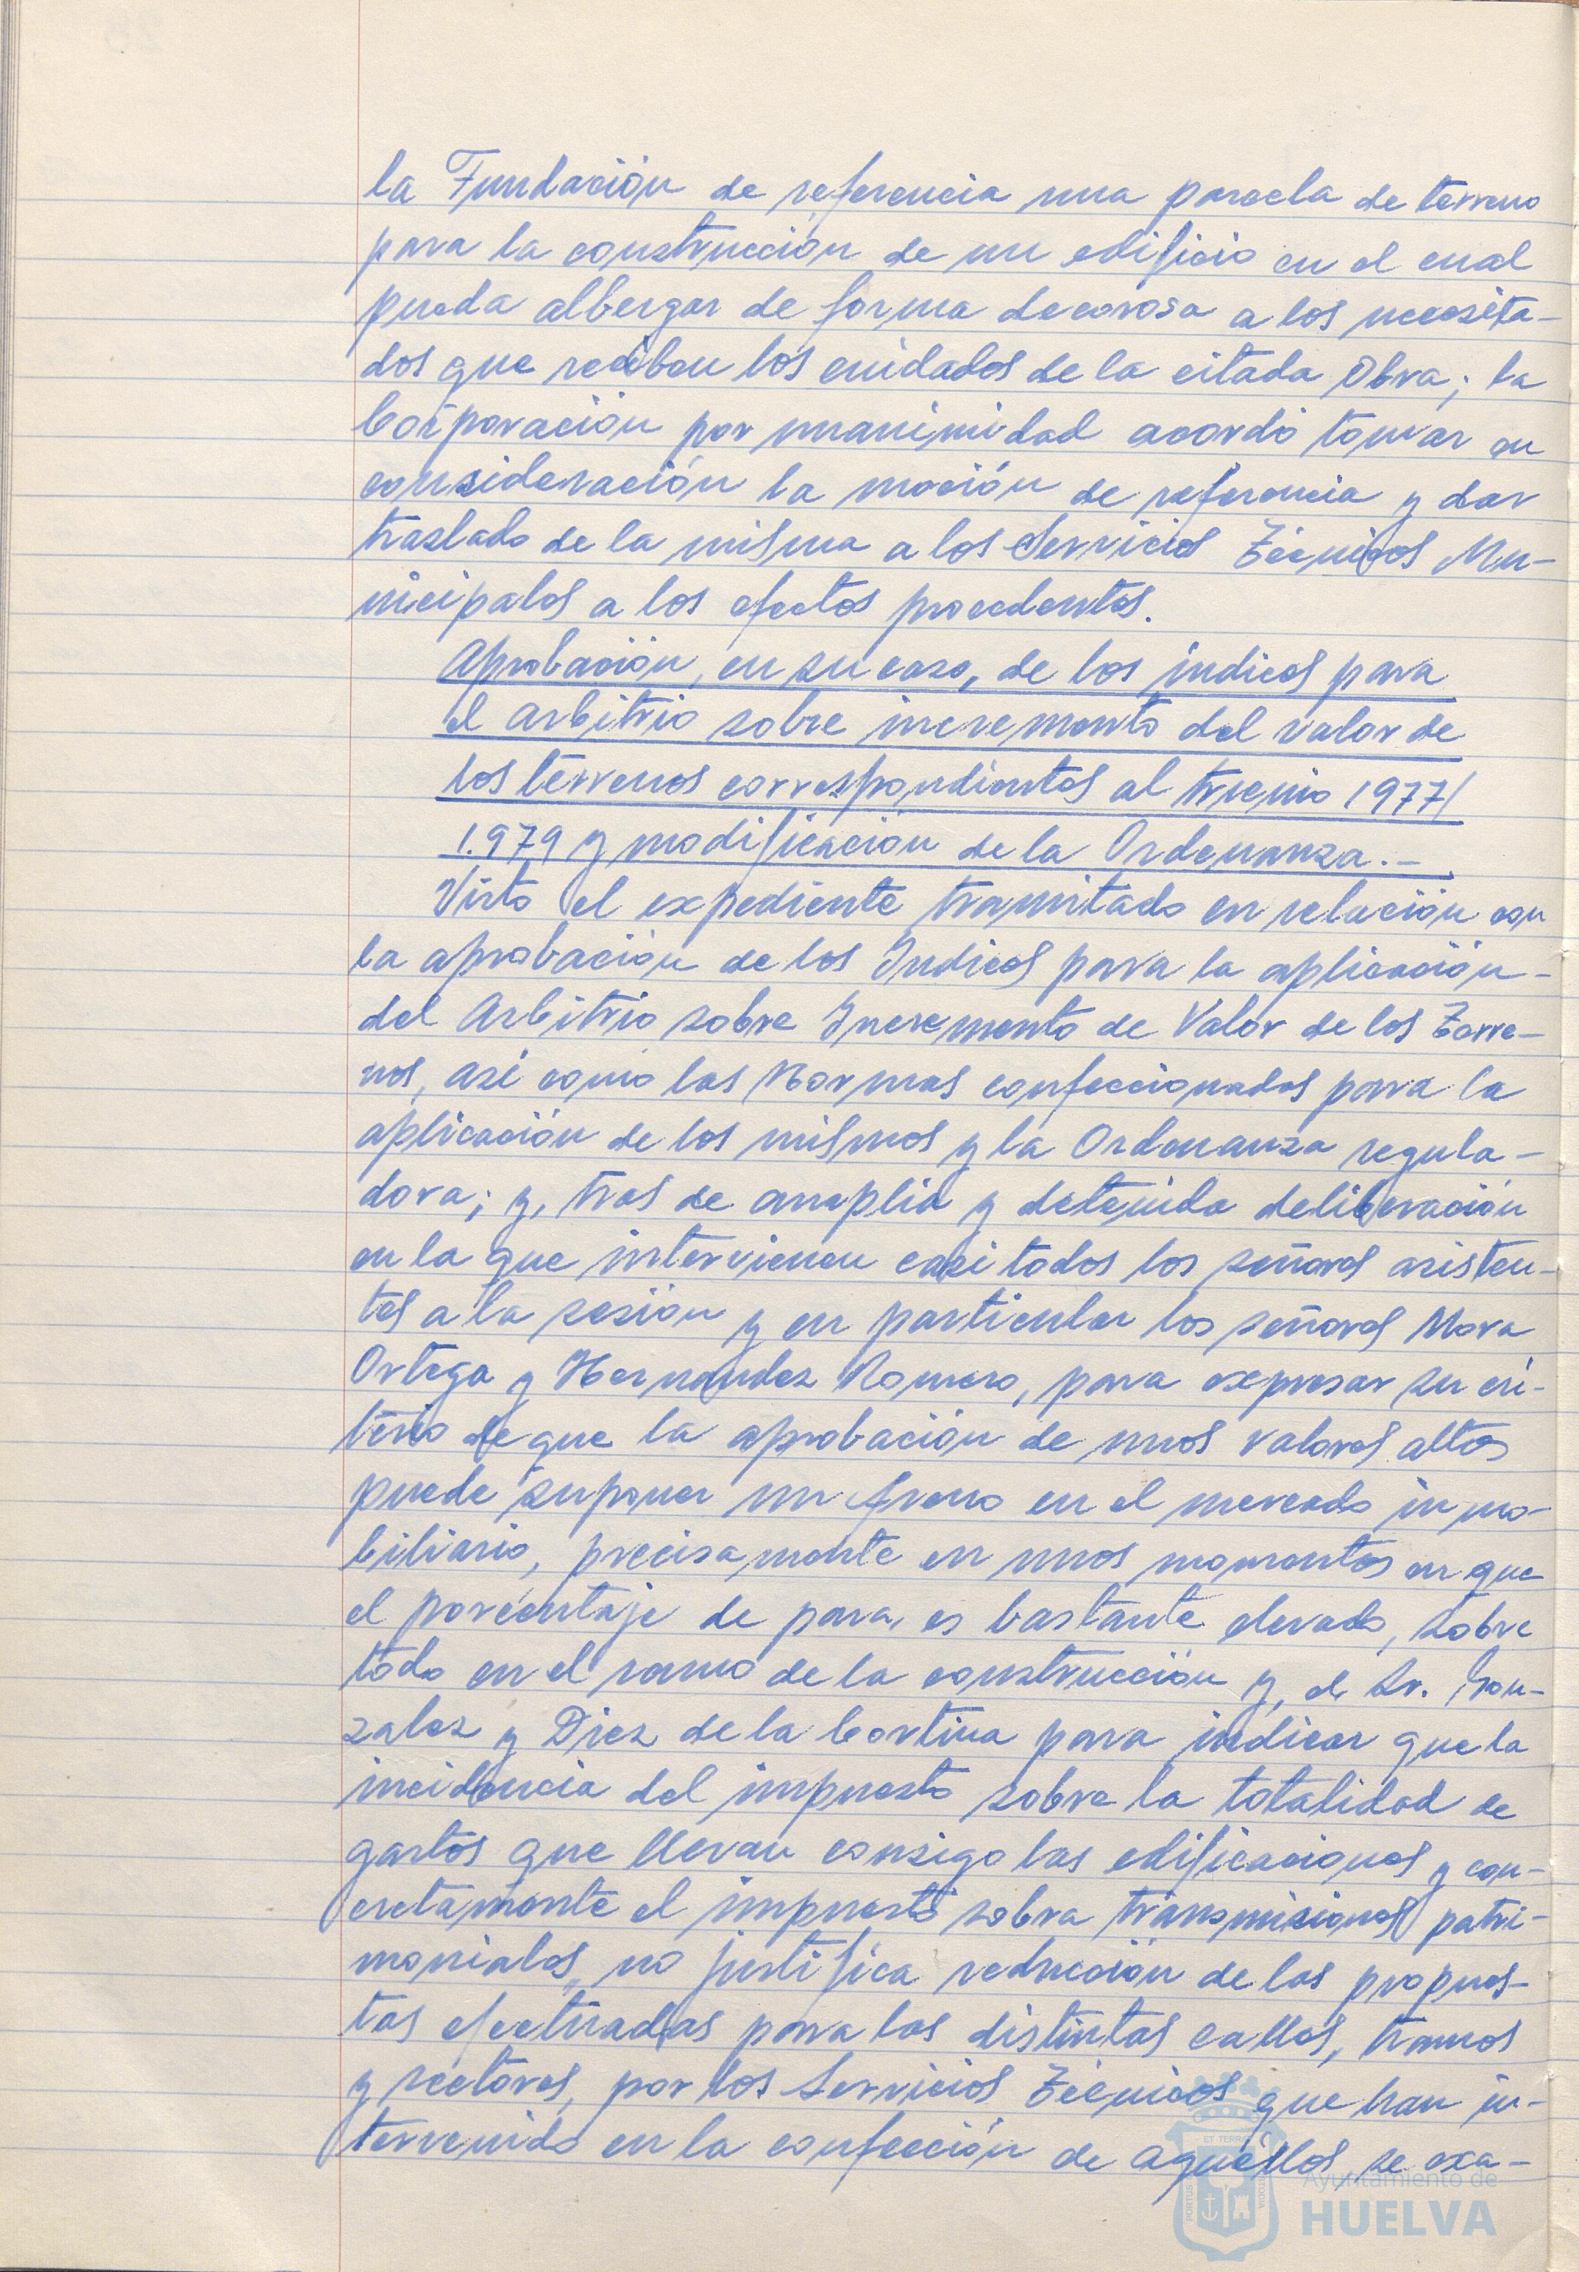 la Fundación de referencia una parcela de terreno
para la construcción de un edificio en el cual
pueda albergar de forma decorosa a los necesita-
dos que reciben los cuidados de la citada Obra; la
Corporación por unanimidad acordó tomar en
consideración la moción de referencia y dar
traslado de la misma a los Servicios Técnicos Mu-
nicipales a los efectos procedentes.
Aprobación, en su caso, de los indices para
el arbitrio sobre incremento del valor de
los terrenos correspondientes al trienio 1977/
1.979 y modificación de la Ordenanza.-
Visto el expediente tramitado en relación con
la aprobación de los Indices para la aplicación-
del Arbitrio sobre Incremento de Valor de los Terre-
nos, asi como las Normas confeccionadas para la
aplicación de los mismos y la Ordenanza regula-
dora; y, tras de amplia y detenida deliberación
en la que intervienen casi todos los señores asisten-
tes a la sesión y en particular los señores Mora
Ortega y Hernandez Romero, para expresar su cri-
terio de que la aprobación de unos valores altos
puede suponer un freno en el mercado inmo-
biliario, precisamente en unos momentos en que
el porcentaje de paro, es bastante elevado, sobre
todo en el ramo de la construcción y, el Sr. Gon-
zalez y Diez de la Cortina para indicar que la
incidencia del impuesto sobre la totalidad de
gastos que llevan consigo las edificaciones y con-
cretamente el impuesto sobre transmisiones patri-
moniales, no justifica reducción de las propues-
tas efectuadas para las distintas calles, tramos
y sectores, por los Servicios Técnicos que han in-
tervenido en la confección de aquéllos, se exa-
ET TERRAE
PORTUS
CUSTODIA
Ayuntamiento de
HUELVA